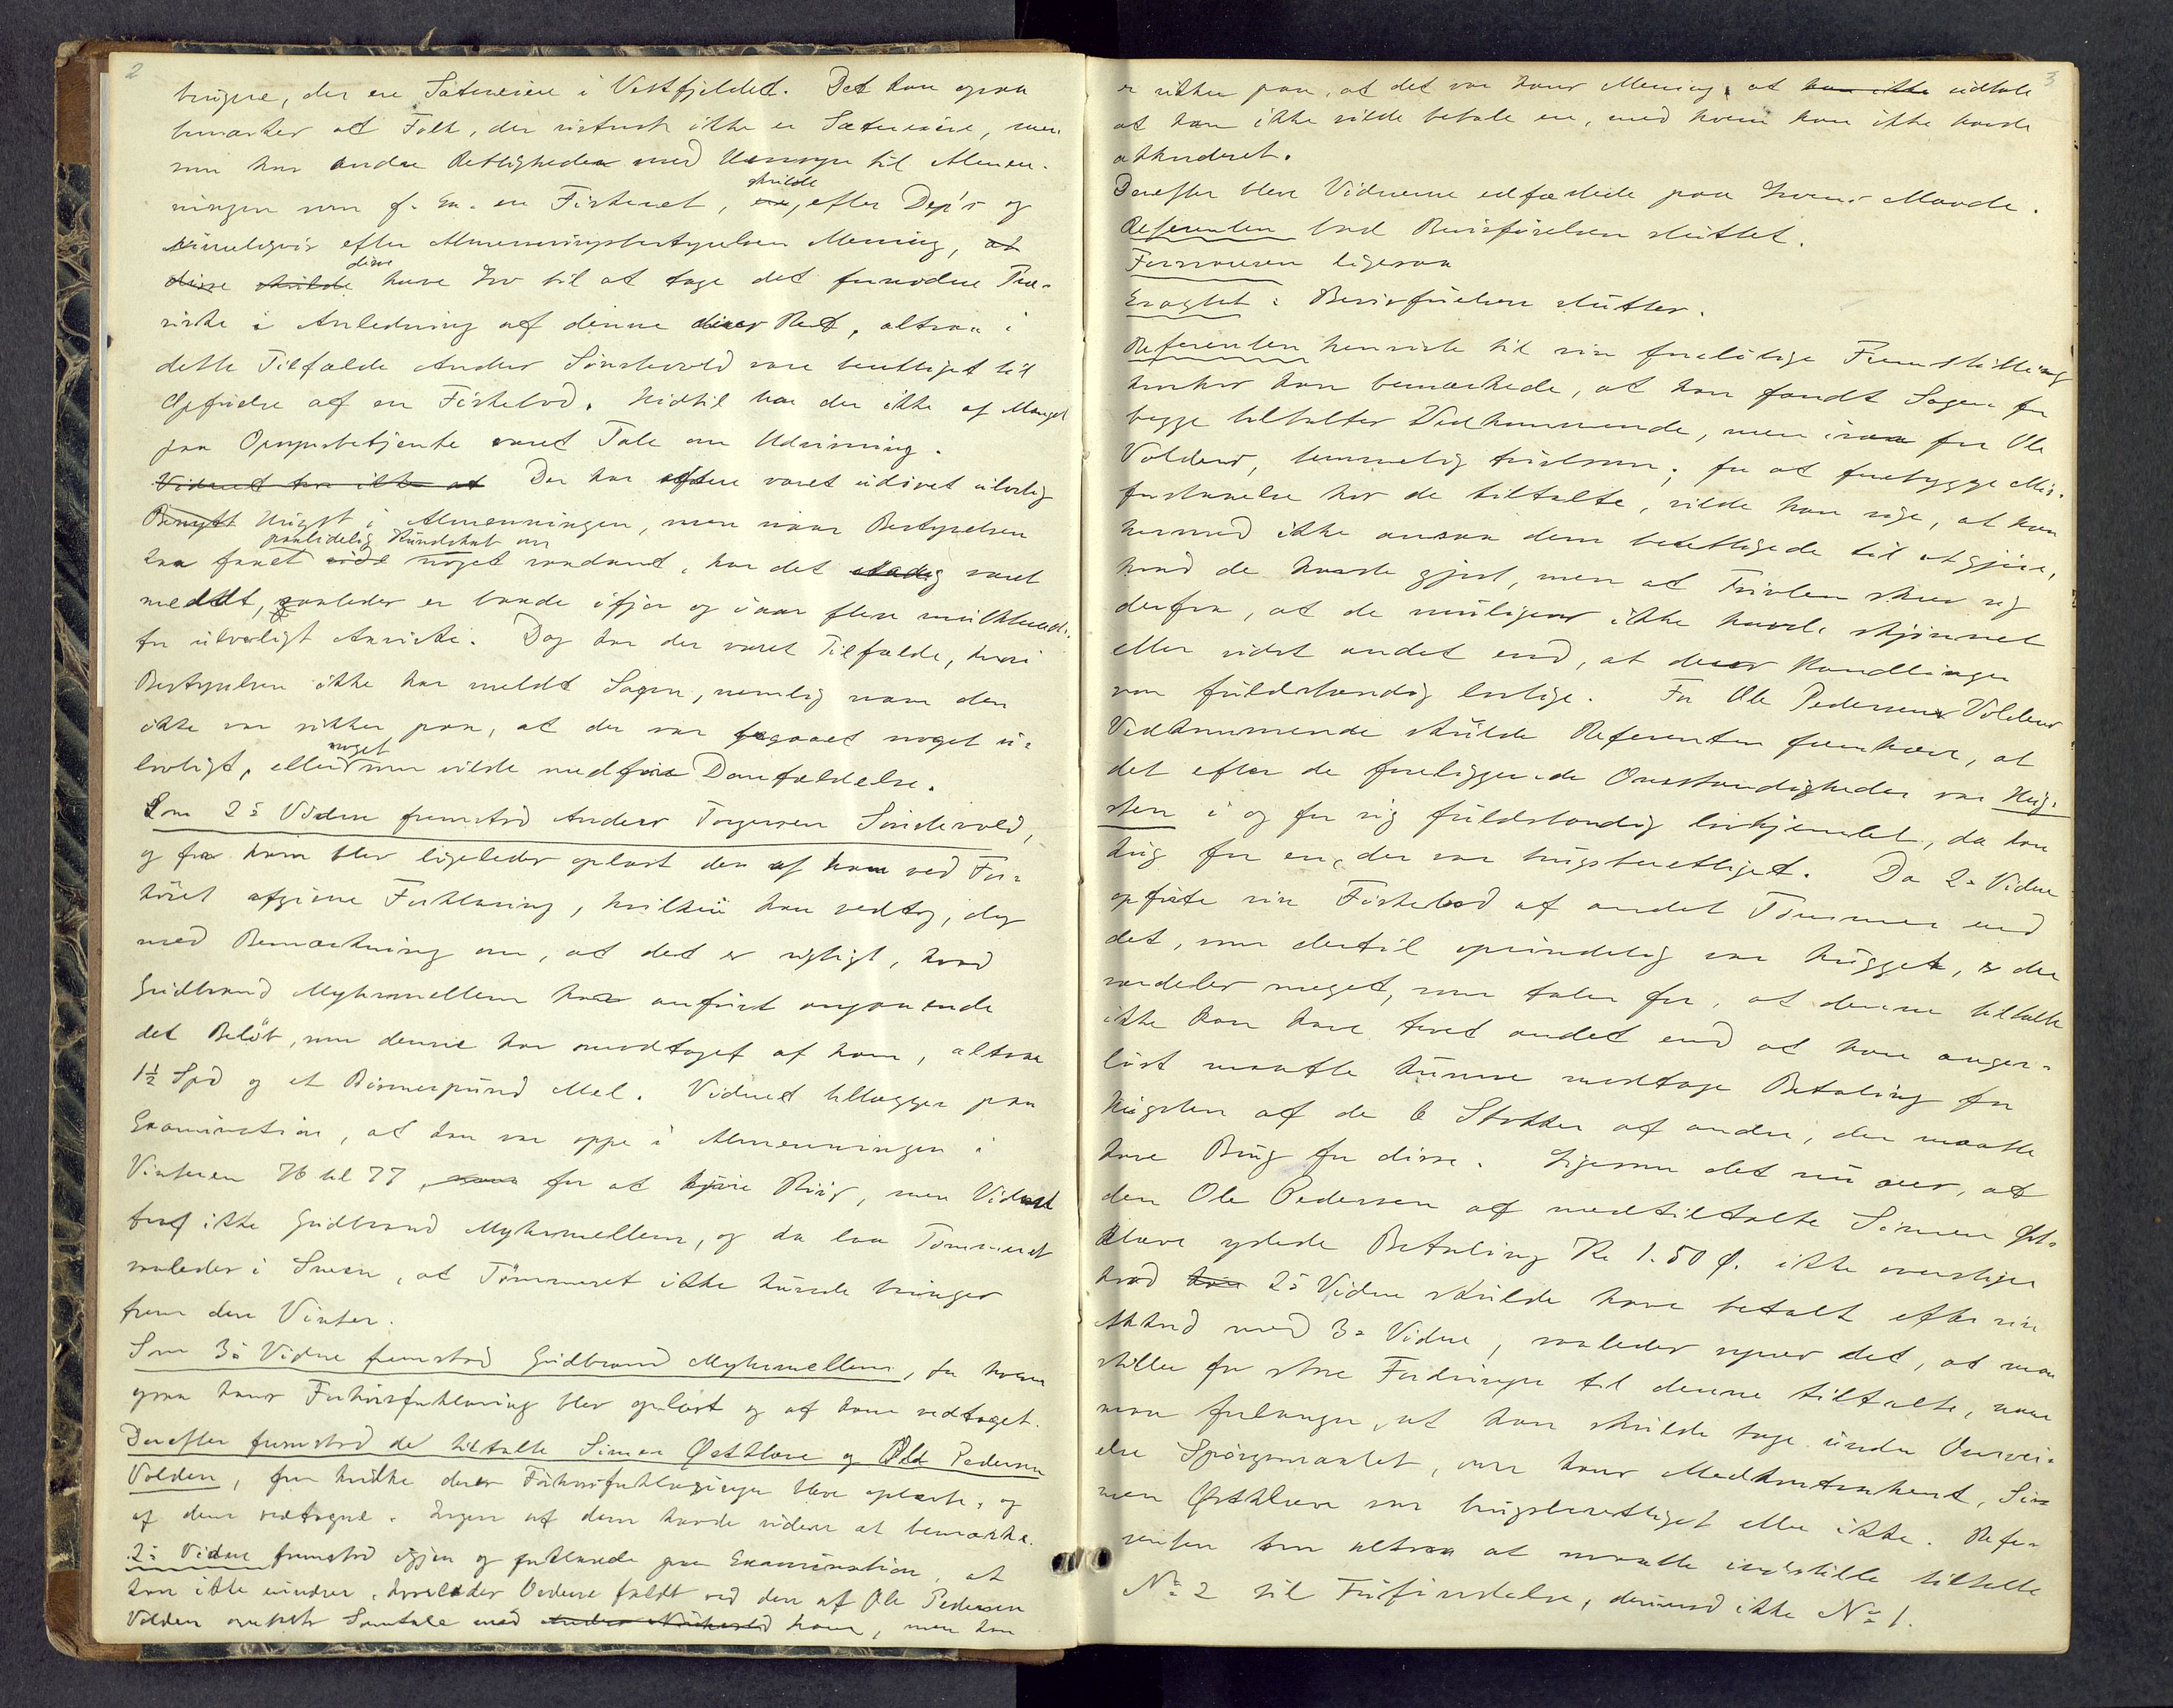 2
brugere, der ere Sætereiere i Vestfjeldet. Det kan ogsaa
bemærkes at Folk, der vistnok ikke er Sætereiere, men
som har andre Rettigheder med Hensyn til Almen-
ningen som f. Ex. en Fisteret, skulde, efter Dep's og
rimeligvis efter Almenningsbestyrelsen Mening, at
disse skulde disse have Lov til at tage det fornødne Træ-
virke i Anledning af denne deres Ret, altsaa i
dette Tilfælde Anders Sønstevold være berettiget til
Opførelse af en Fiskebod. Hidtil har der ikke af Mangel
paa Opsynsbetjente været Tale om Udvisning.
Vidnet tør ikke at Der har oftere været udøvet ulovlig
Benytt Hugst i Almenningen, men naar Bestyrelsen
har faaet vide paalidelig Kundskab om noget saadant, har det stadig været
meldt, saaledes er baade ifjor og iaar flere mulkterede
for ulovligt Anvirke. Dog har der været Tilfælde, hvori
Bestyrelsen ikke har meldt Sagen, nemlig naar den
ikke var sikker paa, at der var begaaet noget u-
lovligt, eller noget som vilde medføre Domfældelse.
Som 2det Vidne fremstod Anders Torgersen Sønstevold,
og for ham blev ligeledes oplæst den af ham ved For-
høret afgivne Forklaring, hvilken han vedtog, dog
med Bemærkning om, at det er rigtigt, hvad
Gudbrand Myhrmellem har anført angaaende
det Beløb, som denne har modtaget af ham, altsaa
1½ Spd og et Bismerpund Mel. Vidnet tillægger paa
Examination, at han var oppe i Almenningen i
Vinteren 76 til 77, for at kjøre Riis, men Vidnet
traf ikke Gudbrand Myhrmellem, og da laa Tømmeret
saaledes i Sneen, at Tømmeret ikke kunde bringes
frem den Vinter.
Som 3die Vidne fremstod Gudbrand Myhrmellem, for hvem
ogsaa hans Forhørsforklaring blev oplæst og af ham vedtaget.
Derefter fremstod de tiltalte Simen Østkleve og Ole Pedersen
Volden, for hvilke deres Forhørsforklaringer bleve oplæste, og
af dem vedtagne. Ingen af dem havde videre at bemærke.
2det Vidne fremstod igjen og forklarede paa Examination, at
han ikke mindes, hvorledes Ordene faldt ved den af Ole Pedersen
Volden omtalte Samtale med ham, men han
3
er sikker paa, at det var hans Mening, at han ikke udtale
at han ikke vilde betale en, med hvem han ikke havde
akkorderet.
Derefter bleve Vidnerne edfæstede paa Lovens Maade.
Referenten bad Bevisførelsen sluttet.
Forsvareren ligesaa
Eragtet: Bevisførelsen sluttes.
Referenten henviste til sin foreløbige Fremstilling
hvorhos han bemærkede, at han fandt Sagen for
begge tiltaltes Vedkommende, men især for Ole
Voldens, temmelig tvivlsom; for at forebygge Mis-
forstaaelse hos de tiltalte, vilde han sige, at han
hermed ikke ansaa dem berettigede til at gjøre,
hvad de havde gjort, men at Tvivlen skrev sig
derfra, at de muligens ikke havde skjønnet
eller vidst andet end, at deres Handlinger
var fuldstændig lovlige. For Ole Pedersens Voldens
Vedkommende skulde Referenten fremhæve, at
det efter de foreliggende Omstændigheder var Hug-
sten i og for sig fuldstændig lovhjemlet, da han
hug for en, der var hugstberettiget. Da 2det Vidne
opførte sin Fiskebod af andet Tømmer end
det, som dertil oprindelig var hugget, er der
særdeles meget, som taler for, at denne tiltalte
ikke kan have troet andet end at han anger-
løst maatte kunne modtage Betaling for
Hugsten af de 6 Stokker af andre, der maatte
have Brug for disse. Ligesom det nu sees, at
den Ole Pedersen af medtiltalte Simen Øst-
kleve ydede Betaling Kr 1.50 Ø. ikke overstiger
hvad 2det Vidne skulde have betalt efter sin
Akkord med 3die Vidne, saaledes synes det, at man
stiller for store Fordringer til denne tiltalte, naar
man forlanger, at han skulde tage under Overvei-
else Spørgsmaalet, om hans Medkontrahent, Si-
men Østkleve var hugstberettiget eller ikke. Refe-
renten tror altsaa at maatte indstille tiltalte
No 2 til Frifindelse, derimod ikke No 1.